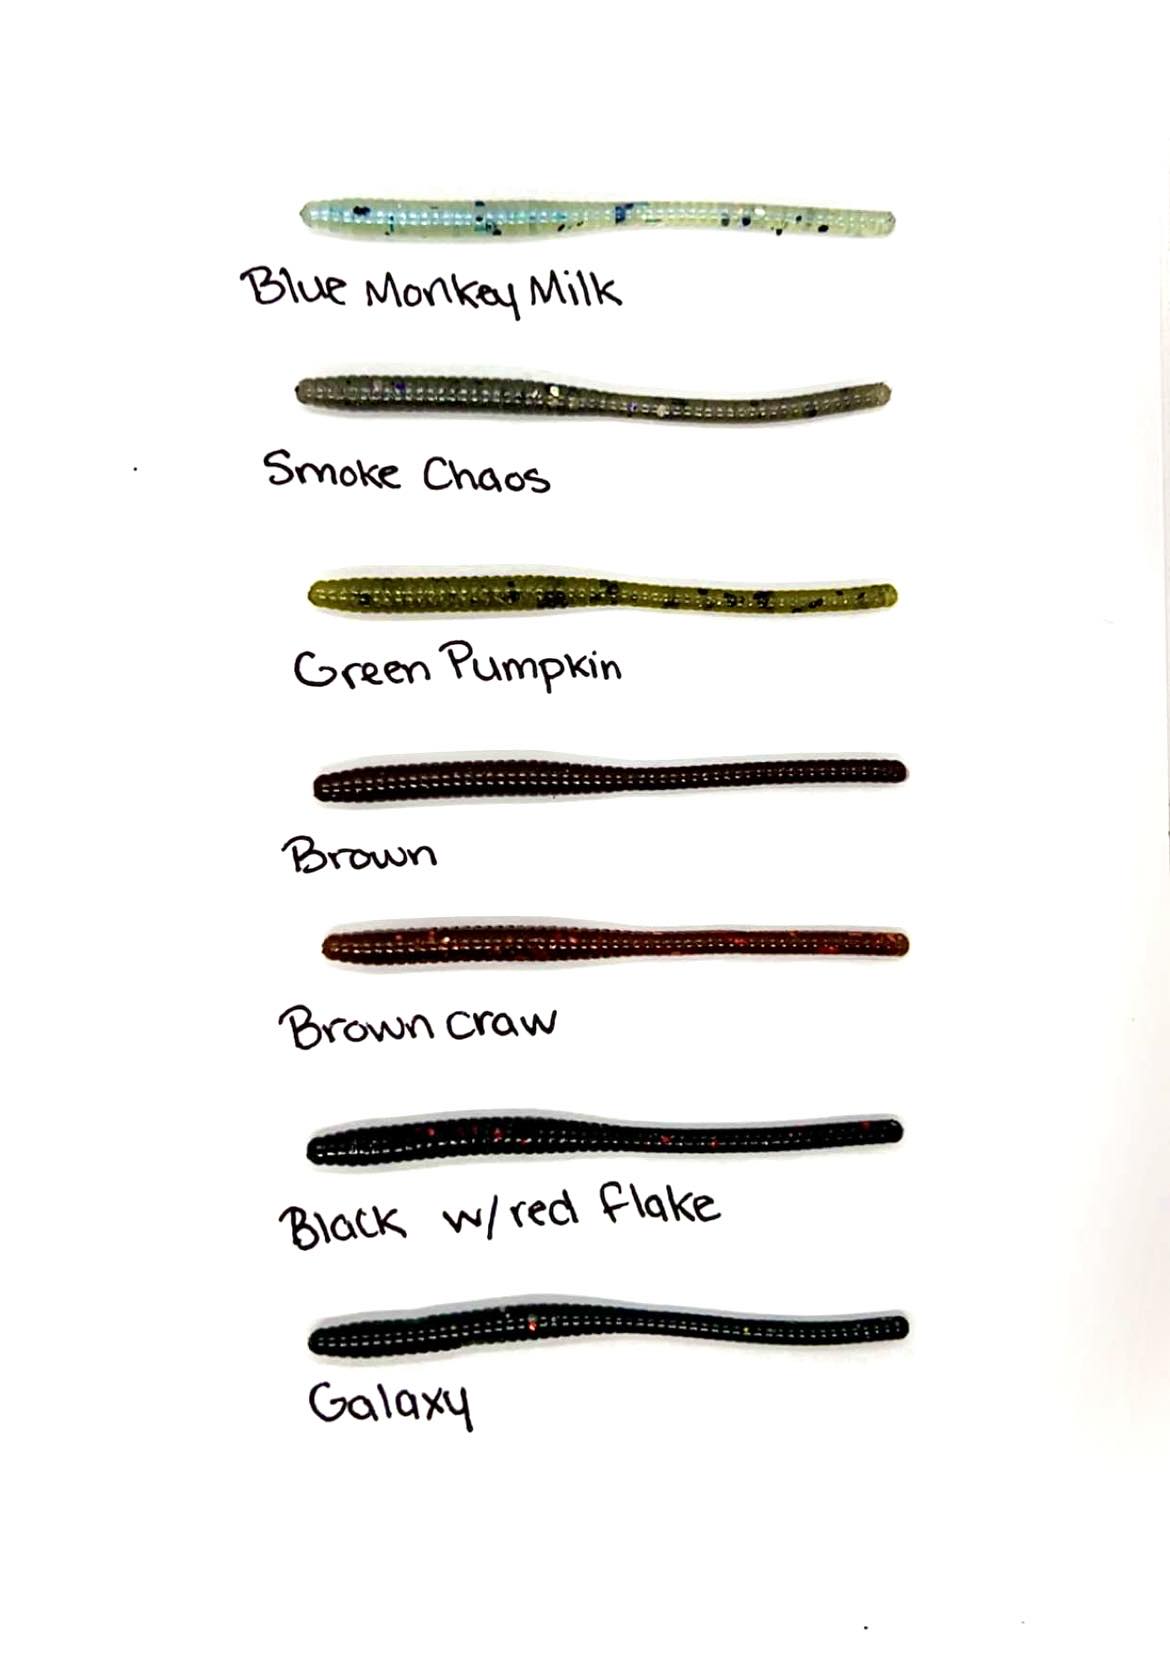 Blue Monkey Milk
Smoke Chaos
Green Pumpkin
Brown
Brown craw
Black w/red flake
Galaxy